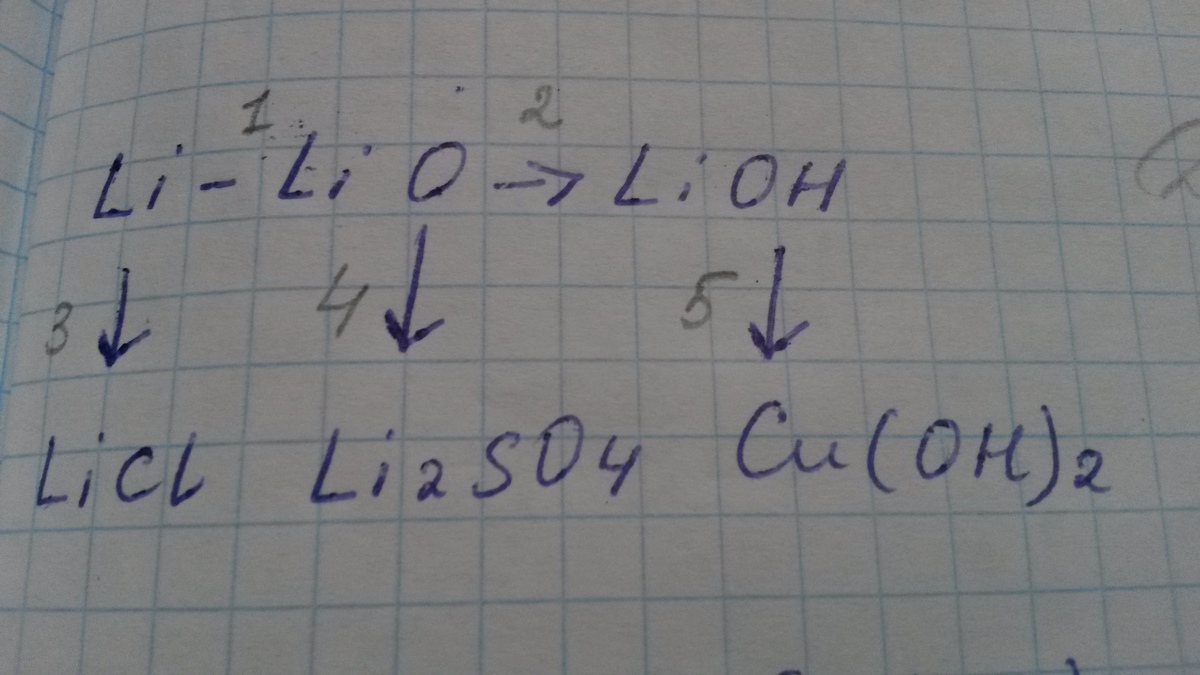 1 2
Li - Li O → LiOH
3 ↓ 4 ↓ 5 ↓
LiCl Li2SO4 Cu(OH)2